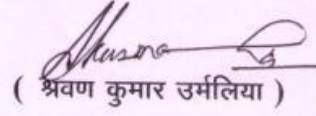 ( श्रवण कुमार उर्मलिया )